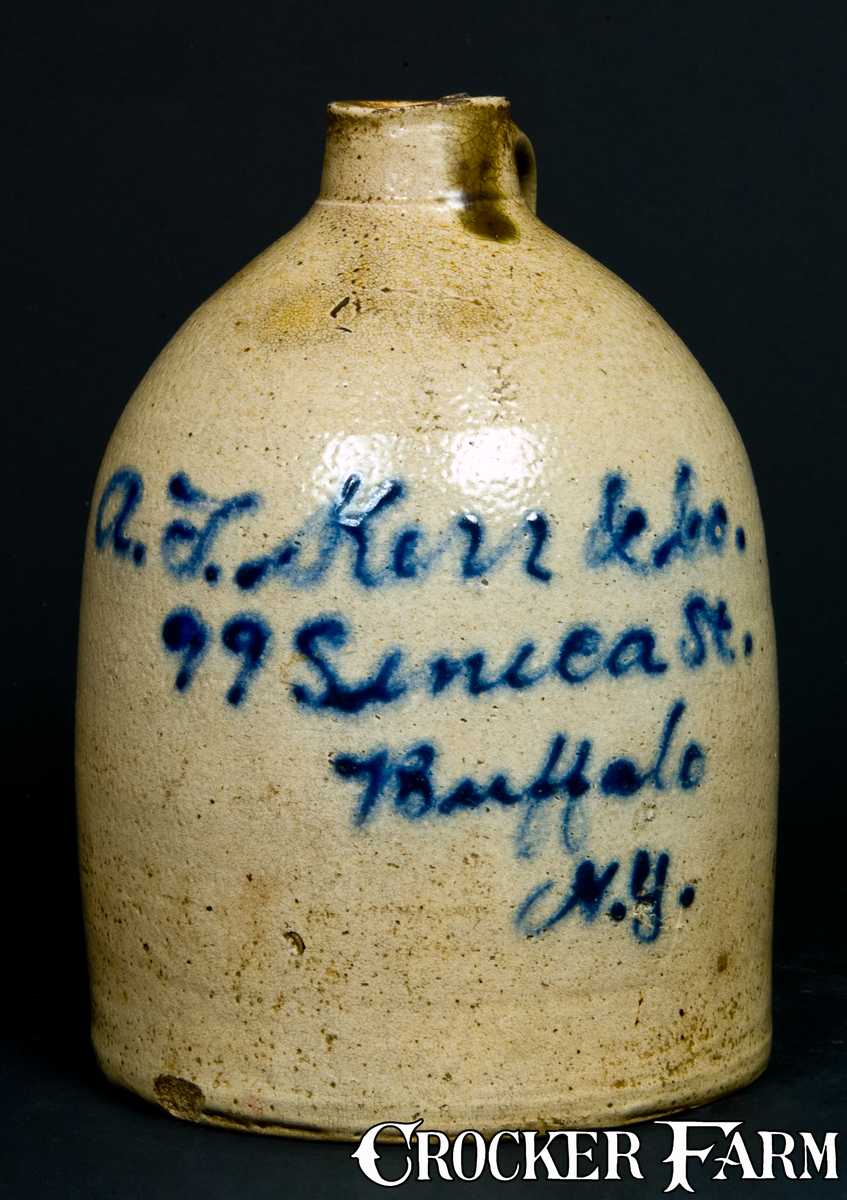 A. T. Kerr & Co.
99 Seneca St.
Buffalo
N.Y.
CROCKER FARM